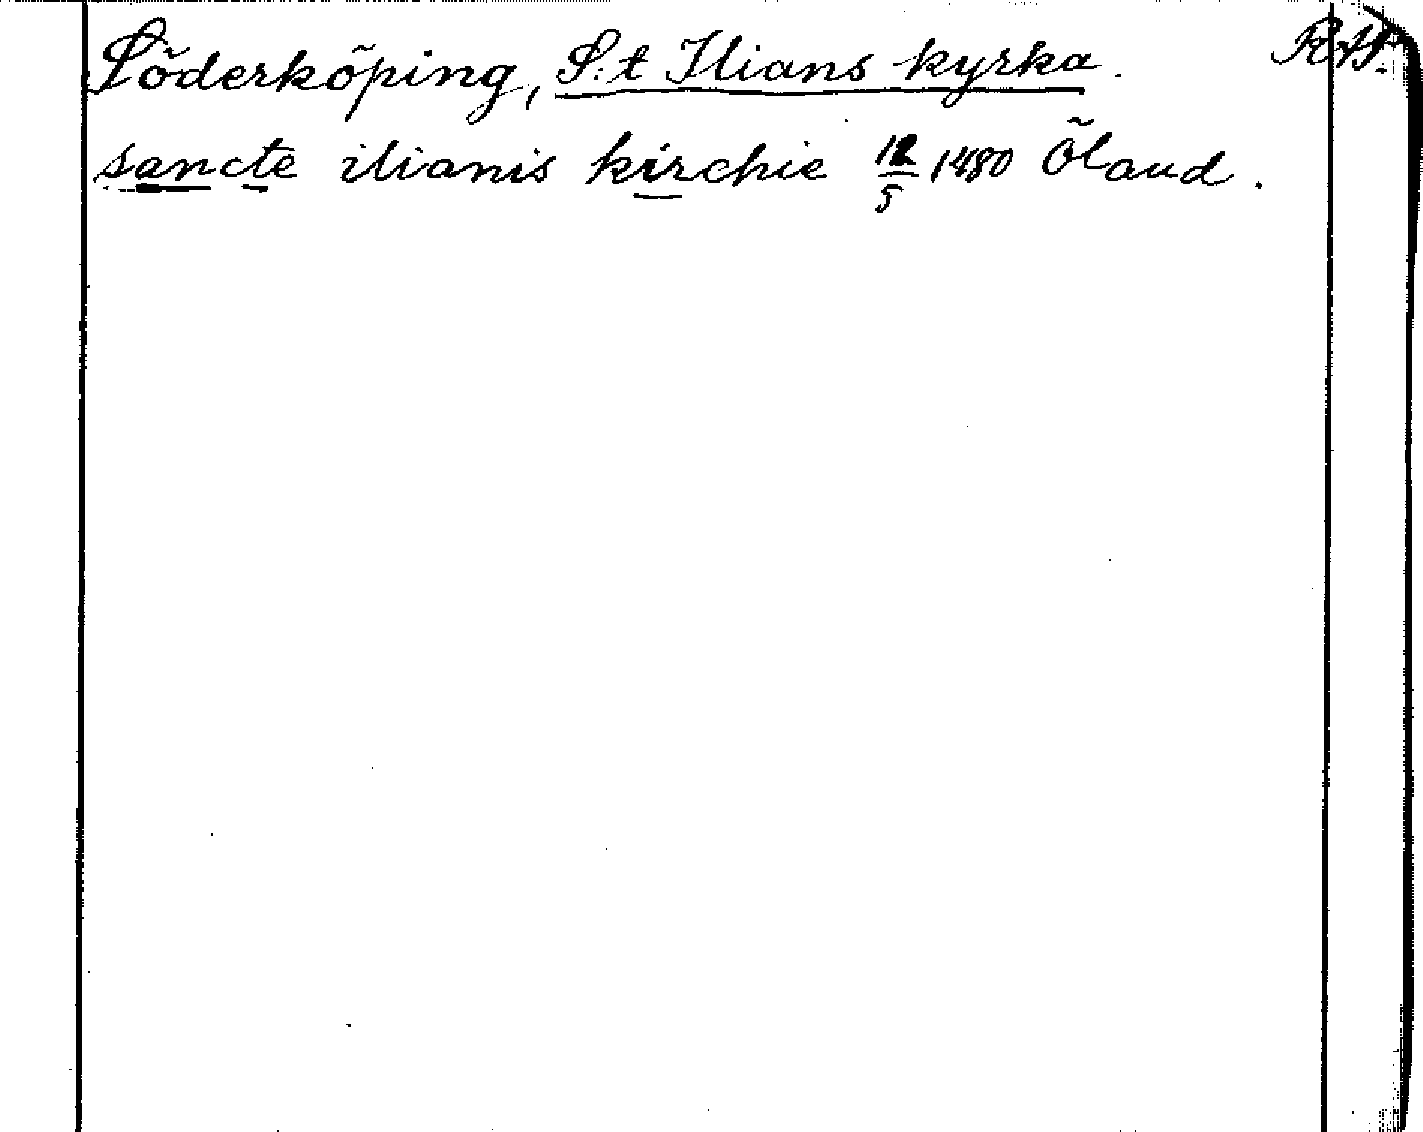 Söderköping, S:t Ilians kyrka.
sancte ilianis kirchie 12/5 1480 Öland.